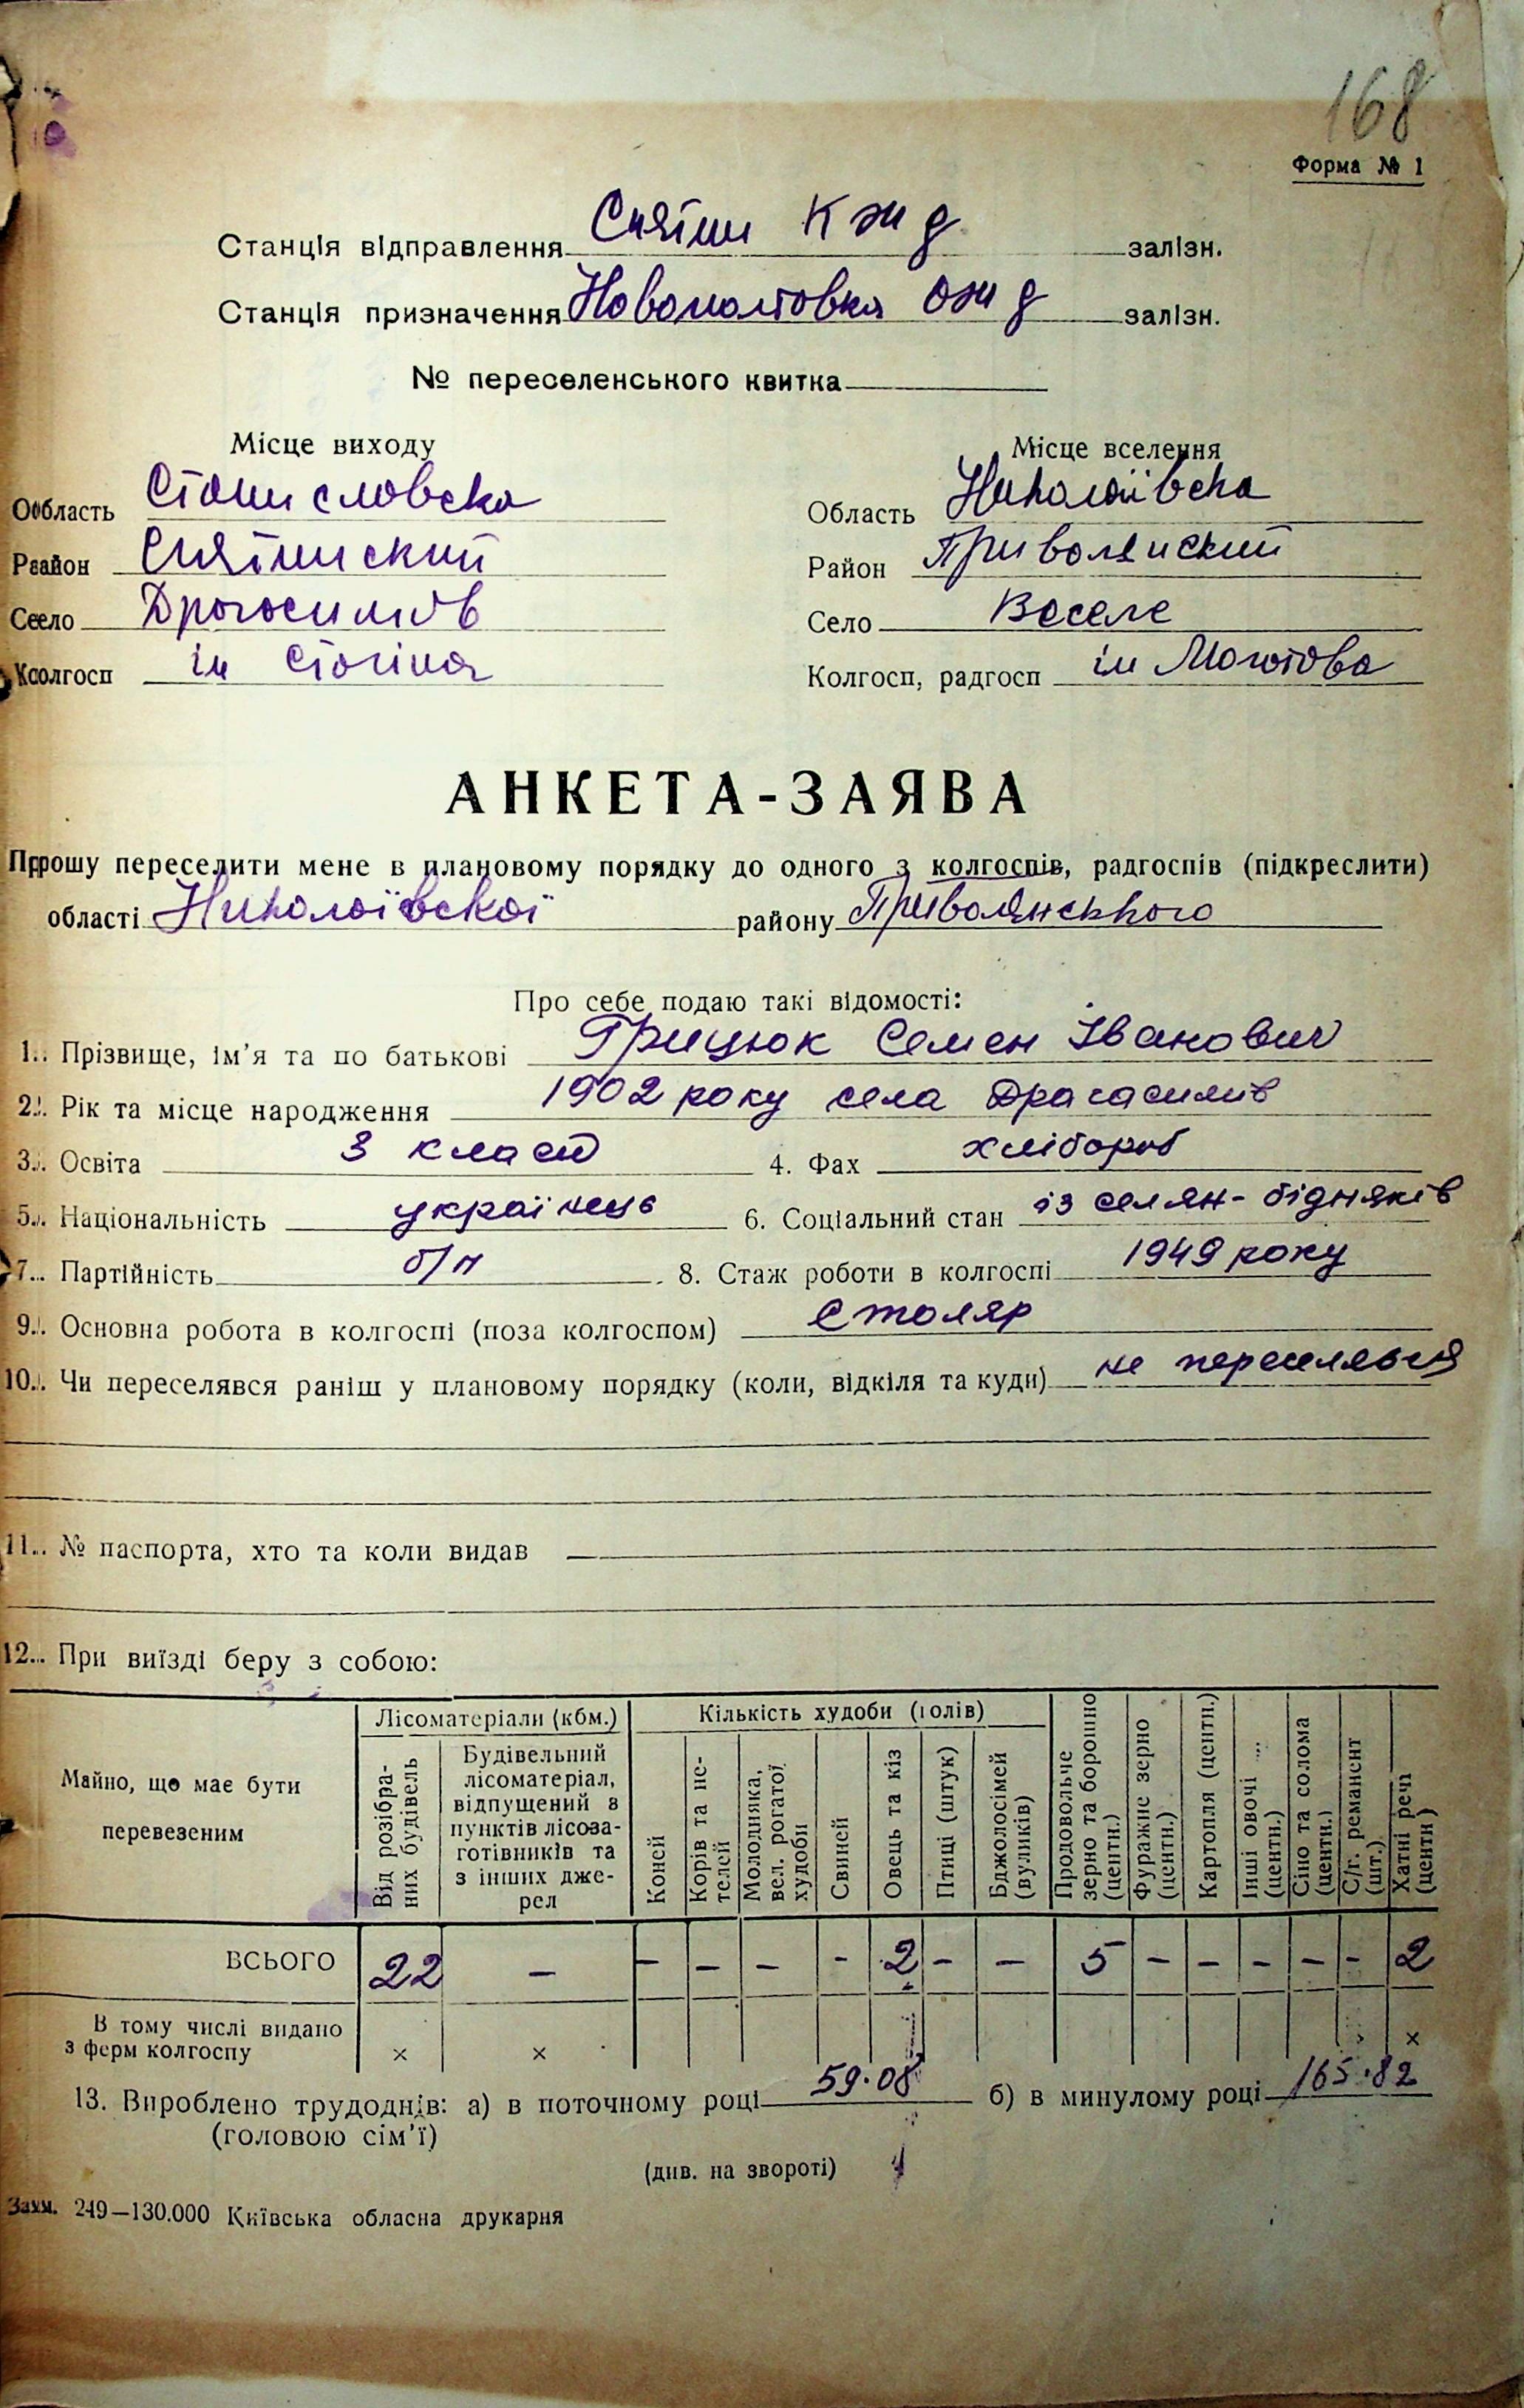 168
Форма № 1
Станція відправлення Снятин К ж д залізн.
Станція призначення Новополтовка Ож д залізн.
№ переселенського квитка
Місце виходу Місце вселення
Область Станиславска Область Николаївска
Район Снятинский Район Привольнский
Село Драгосимов Село Веселе
Колгосп ім Сталіна Колгосп, радгосп ім Молотова
АНКЕТА-ЗАЯВА
Прошу переселити мене в плановому порядку до одного з колгоспів, радгоспів (підкреслити)
області Николаївскої району Приволянського
Про себе подаю такі відомості:
1. Прізвище, ім’я та по батькові Грицюк Семен Іванович
2. Рік та місце народження 1902 року села Драгасимів
3. Освіта 3 класи 4. Фах хлібороб
5. Національність українець 6. Соціальний стан із селян-бідняків
7. Партійність б/п 8. Стаж роботи в колгоспі 1949 року
9. Основна робота в колгоспі (поза колгоспом) столяр
10. Чи переселявся раніш у плановому порядку (коли, відкіля та куди) не переселявся
11. № паспорта, хто та коли видав
12. При виїзді беру з собою:
Майно, що має бути перевезеним
Лісоматеріали (кбм.)
Від розібра-
них будівель
Будівельний
лісоматеріал,
відпущений з
пунктів лісоза-
готівників та
з інших дже-
рел
Кількість худоби (голів)
Коней
Корів та не-
телей
Молодняка,
вел. рогатої
худоби
Свиней
Овець та кіз
Птиці (штук)
Бджолосімей
(вуликів)
Продовольче
зерно та борошно
(центн.)
Фуражне зерно
(центн.)
Картопля (центн.)
Інші овочі ...
(центн.)
Сіно та солома
(центн.)
С/г. реманент
(шт.)
Хатні речі
(центн)
ВСЬОГО 22 — — — — - 2 — — 5 — — — — - 2
В тому числі видано
з ферм колгоспу × × ×
13. Вироблено трудоднів: а) в поточному році 59.08 б) в минулому році 165.82
(головою сім’ї)
(див. на звороті)
Зам. 249—130.000 Київська обласна друкарня